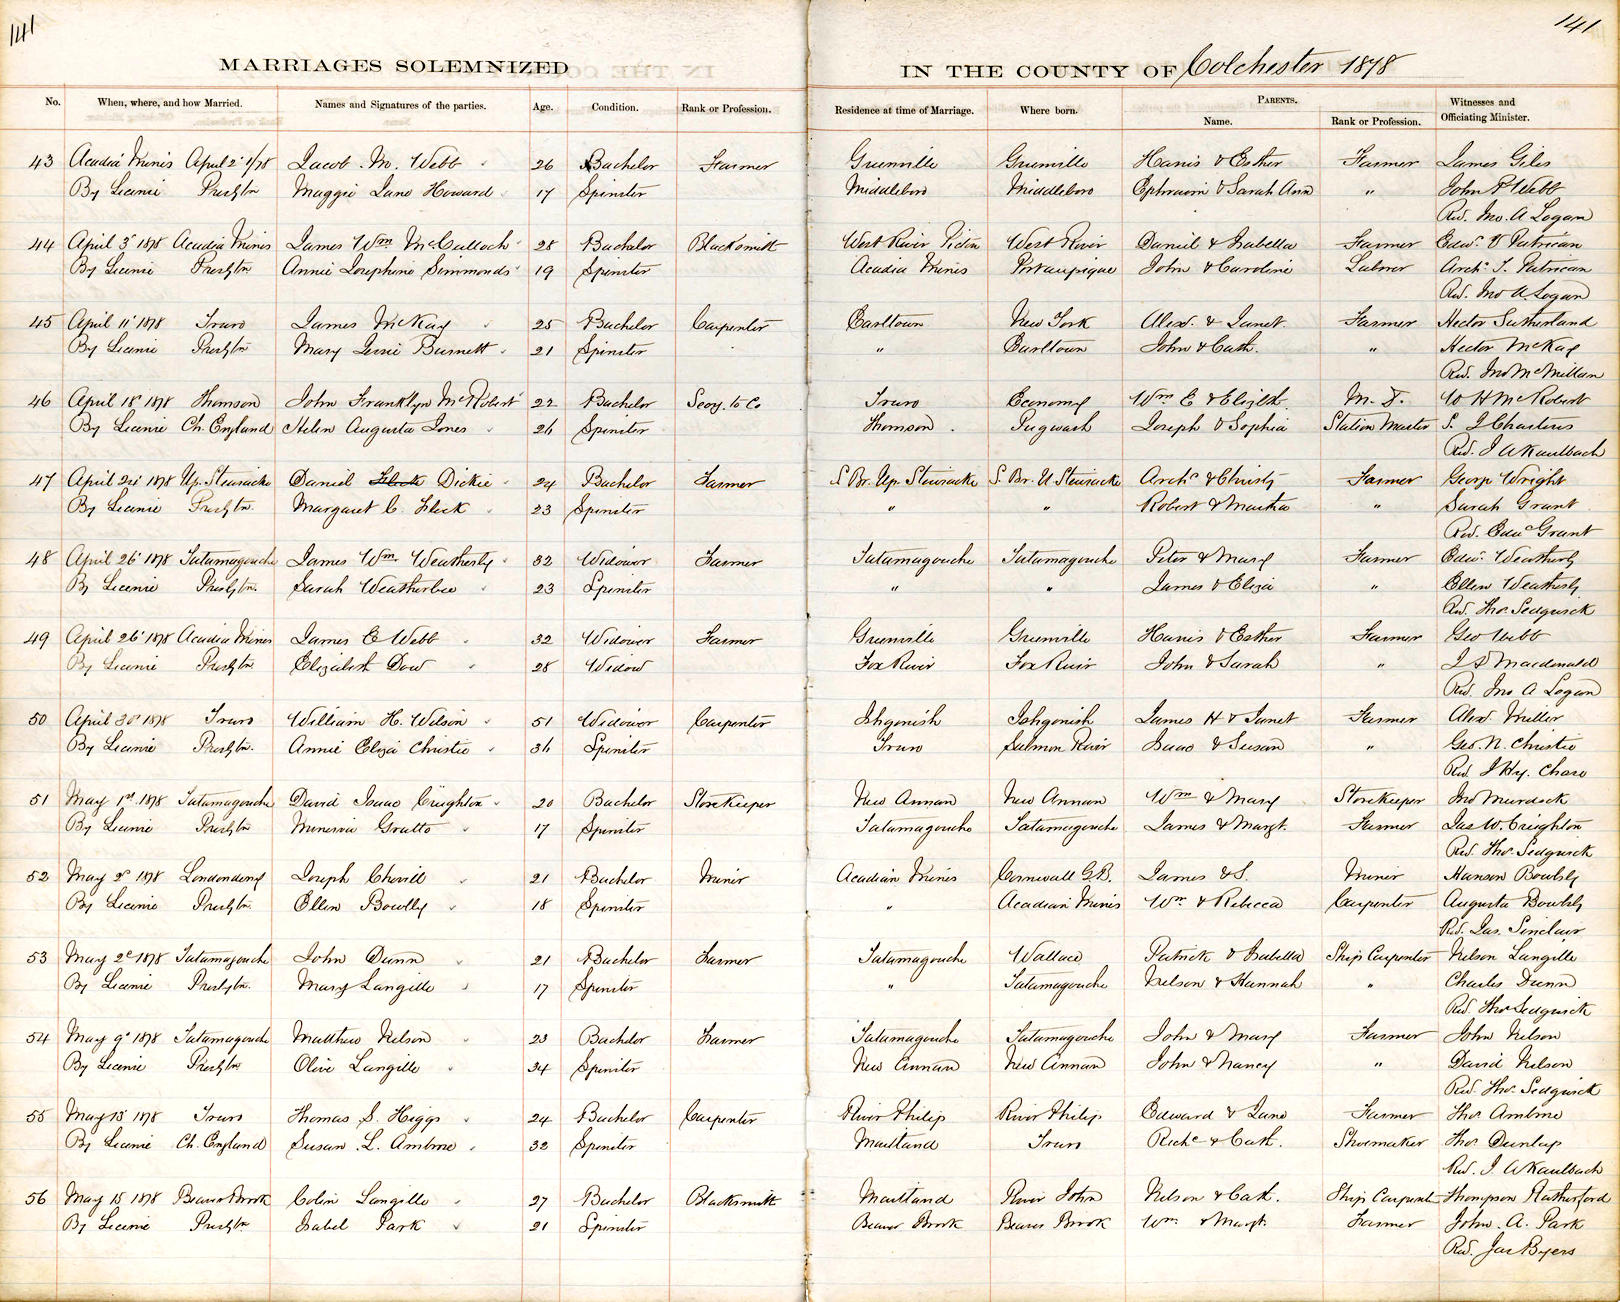 141
141
MARRIAGES SOLEMNIZED
IN THE COUNTY OF Colchester 1878
No. When, where, and how Married. Names and Signatures of the parties. Age. Condition. Rank or Profession. Residence at time of Marriage. Where born. PARENTS. Name. Rank or Profession. Witnesses and Officiating Minister.
43 Acadia Mines April 2d 1/78 Jacob M. Webb 26 Bachelor Farmer Greenville Greenville Harris & Esther Farmer James Giles
By License Presbytn Maggie Jane Howard 17 Spinster Middleboro Middleboro Ephraim & Sarah Ann " John F Webb
Rev. Jno. A Logan
44 April 3d 1878 Acadia Mines James Wm McCulloch 28 Bachelor Blacksmith West River Pictou West River Daniel & Isabella Farmer Edwd Patrican
By License Presbytn Annie Josephine Simmonds 19 Spinster Acadia Mines Portaupique John & Caroline Laborer Archd T. Patrican
Rev. Jno A. Logan
45 April 11th 1878 Truro James McKay 25 Bachelor Carpenter Earltown New York Alexr. & Janet Farmer Hector Sutherland
By License Presbytn Mary Jessie Burnett 21 Spinster " Earltown John & Cath. " Hector McKay
Rev. Jno McMillan
46 April 18th 1878 Thomson John Franklyn McRobert 22 Bachelor Secy. to Co Truro Economy Wm E & Elizbt. M. D. W H McRobert
By License Ch. England Helen Augusta Jones 26 Spinster Thomson Pugwash Joseph & Sophia Station Master S. J Charters
Rev. J A Kaulbach
47 April 24 1878 Up. Stewiacke Daniel Dickie 24 Bachelor Farmer S Br. Up. Stewiacke S. Br. U Stewiacke Archd & Christy Farmer George Wright
By License Presbytn. Margaret C. Fleck 23 Spinster " " Robert & Martha " Sarah Grant
Rev. Edwd Grant
48 April 26th 1878 Tatamagouche James Wm. Weatherby 32 Widower Farmer Tatamagouche Tatamagouche Peter & Mary Farmer Edwd. Weatherby
By License Presbytn. Sarah Weatherbee 23 Spinster " " James & Eliza " Ellen Weatherby
Rev. Thos. Sedgwick
49 April 26th 1878 Acadia Mines James E Webb 32 Widower Farmer Greenville Greenville Harris & Esther Farmer Geo Webb
By License Presbytn Elizabeth Dow 28 Widow Fox River Fox River John & Sarah " J S Macdonald
Rev. Jno A Logan
50 April 30th 1878 Truro William H. Wilson 51 Widower Carpenter Ishgonish Ishgonish James H & Janet Farmer Alexr Miller
By License Presbytn. Annie Eliza Christie 36 Spinster Truro Salmon River Isaac & Susan " Geo. N. Christie
Rev J Hy. Chase
51 May 1st 1878 Tatamagouche David Isaac Creighton 20 Bachelor StoreKeeper New Annan New Annan Wm & Mary StoreKeeper Jno Murdock
By License Presbytn Minervia Gratto 17 Spinster Tatamagouche Tatamagouche James & Margt. Farmer Jas W. Creighton
Rev. Thos Sedgwick
52 May 2d 1878 Londonderry Joseph 21 Bachelor Miner Acadian Mines Cornwall G.B. James & S. Miner Hanson Bowlby
By License Presbytn Ellen Bowlby 18 Spinster " Acadian Mines Wm. & Rebecca Carpenter Augusta Bowlby
Rev. Jas. Sinclair
53 May 2d 1878 Tatamagouche John Dunn 21 Bachelor Farmer Tatamagouche Wallace Patrick & Isabella Ship Carpenter Nelson Langille
By License Presbytn. Mary Langille 17 Spinster " Tatamagouche Nelson & Hannah " Charles Dunn
Rev. Thos Sedgwick
54 May 9th 1878 Tatamagouche Matthew Nelson 23 Bachelor Farmer Tatamagouche Tatamagouche John & Mary Farmer John Nelson
By License Presbytn Olive Langille 34 Spinster New Annan New Annan John & Nancy " David Nelson
Rev. Thos. Sedgwick
55 May 15th 1878 Truro Thomas S. Higgs 24 Bachelor Carpenter River Philip River Philip Edward & Jane Farmer Thos Ambrose
By License Ch. England Susan L. Ambrose 32 Spinster Maitland Truro Richd & Cath. Shoemaker Thos. Dunlap
Rev. J. A Kaulbach
56 May 15 1878 Beaver Brook Colin Langille 27 Bachelor Blacksmith Maitland River John Nelson & Cath. Ship Carpenter Thompson Rutherford
By License Presbytn Isabel Park 21 Spinster Beaver Brook Beaver Brook Wm. & Margt. Farmer John. A. Park
Rev. Jas Byers